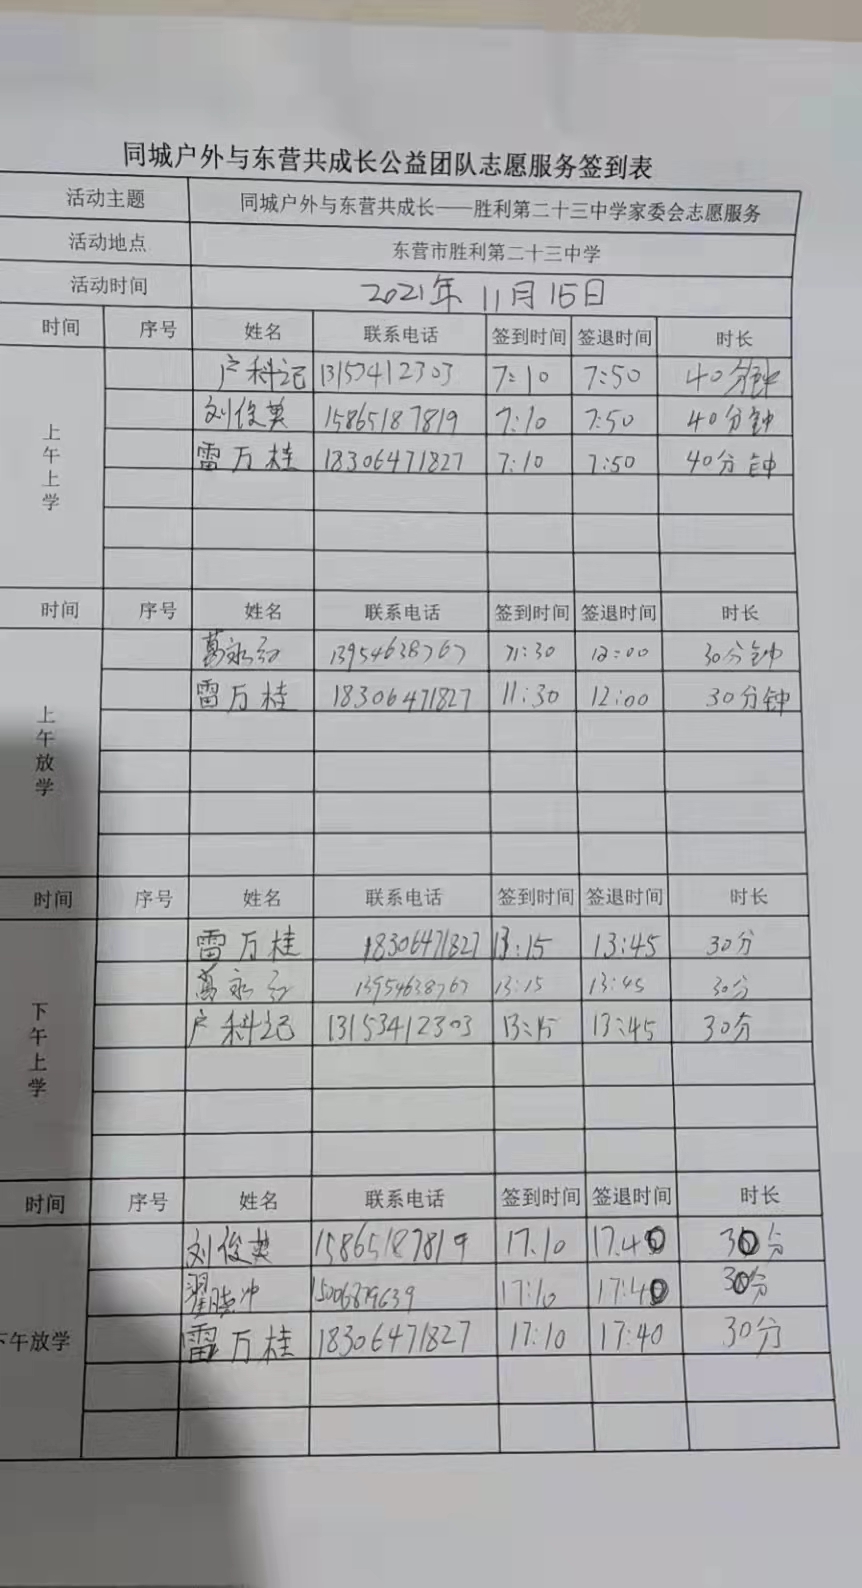 同城户外与东营共成长公益团队志愿服务签到表
活动主题 同城户外与东营共成长——胜利第二十三中学家委会志愿服务
活动地点 东营市胜利第二十三中学
活动时间 2021年11月15日
时间 序号 姓名 联系电话 签到时间 签退时间 时长
上午上学
户科记 13153412303 7:10 7:50 40分钟
刘俊英 15865187819 7:10 7:50 40分钟
雷万桂 18306471827 7:10 7:50 40分钟
时间 序号 姓名 联系电话 签到时间 签退时间 时长
上午放学
葛永红 13954638767 11:30 12:00 30分钟
雷万桂 18306471827 11:30 12:00 30分钟
时间 序号 姓名 联系电话 签到时间 签退时间 时长
下午上学
雷万桂 18306471827 13:15 13:45 30分
葛永红 13954638767 13:15 13:45 30分
户科记 13153412303 13:15 13:45 30分
时间 序号 姓名 联系电话 签到时间 签退时间 时长
下午放学
刘俊英 15865187819 17.10 17.40 30分
翟晓冲 17:10 17:40 30分
雷万桂 18306471827 17:10 17:40 30分